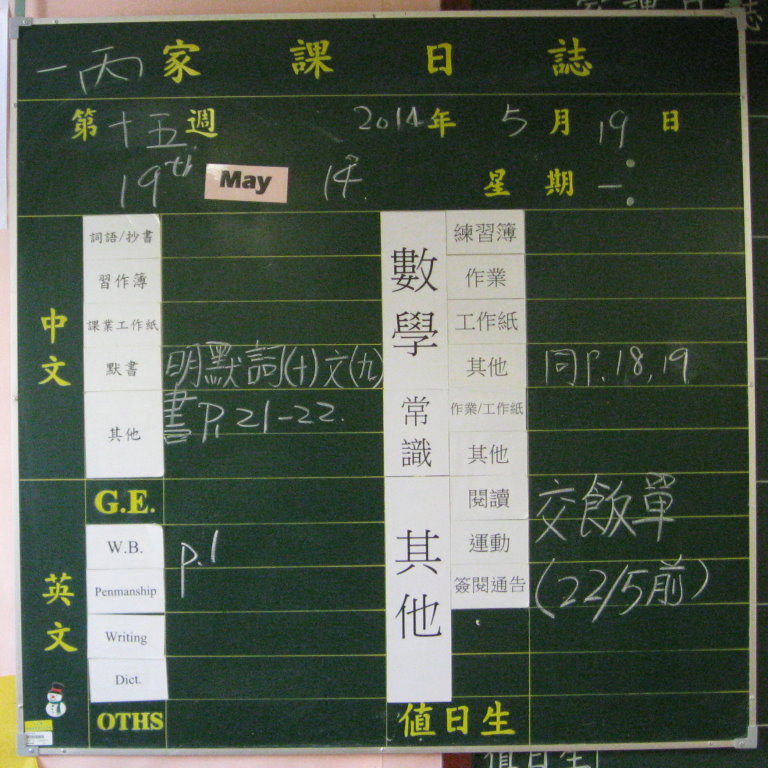 一丙 家課日誌
第十五週 2014年 5月 19日
19th May 14 星期一
中文
詞語/抄書
習作簿
課業工作紙
默書 明默詞(十)文(九)
其他 書P.21-22.
英文
G.E.
W.B. p.1
Penmanship
Writing
Dict.
OTHS
數學
練習簿
作業
工作紙
其他 同P.18,19
常識
作業/工作紙
其他
其他
閱讀 交飯單
運動
簽閱通告 (22/5前)
值日生